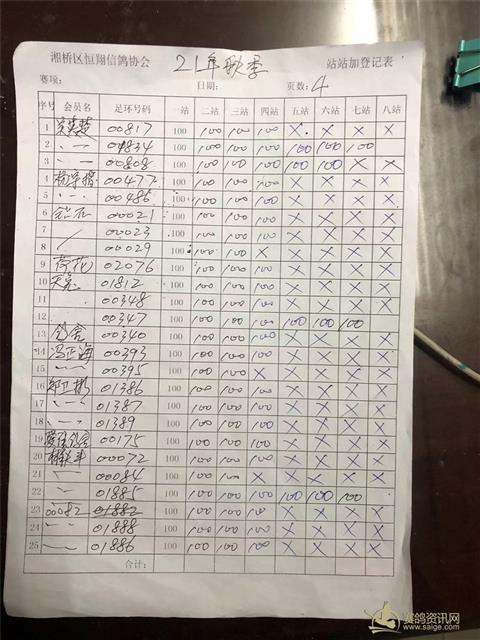 湘桥区恒翔信鸽协会 21年秋季 站站加登记表
赛项: 日期: 页数: 4
序号 会员名 足环号码 一站 二站 三站 四站 五站 六站 七站 八站
1 00817 100 100 100 100 X X X X
2 01834 100 100 100 100 100 100 100
3 00808 100 100 100 100 100 100 X X
4 00477 100 100 100 100 X X X X
5 00486 100 100 100 100 X X X X
6 00021 100 100 100 100 X X X X
7 00023 100 100 100 100 X X X X
8 00029 100 100 100 X X X X X
9 荷花 02076 100 100 100 100 X X X X
10 01812 100 100 100 100 X X X X
11 00348 100 100 100 100 X X X X
12 00347 100 100 100 100 100 100 100
13 00340 100 100 100 100 X X X X
14 冯正海 00393 100 100 100 100 X X X X
15 00395 100 100 100 X X X X X
16 01386 100 100 100 100 X X X X
17 01387 100 100 100 100 X X X X
18 01389 100 100 100 100 X X X X
19 00175 100 100 100 100 X X X X
20 00072 100 100 100 100 X X X X
21 00084 100 100 100 X X X X X
22 01885 100 100 100 100 100 100 100
23 00082 01882 100 100 100 100 X X X X
24 01888 100 100 100 100 X X X X
25 01886 100 100 100 100 X X X X
合计:
赛鸽资讯网
www.saige.com